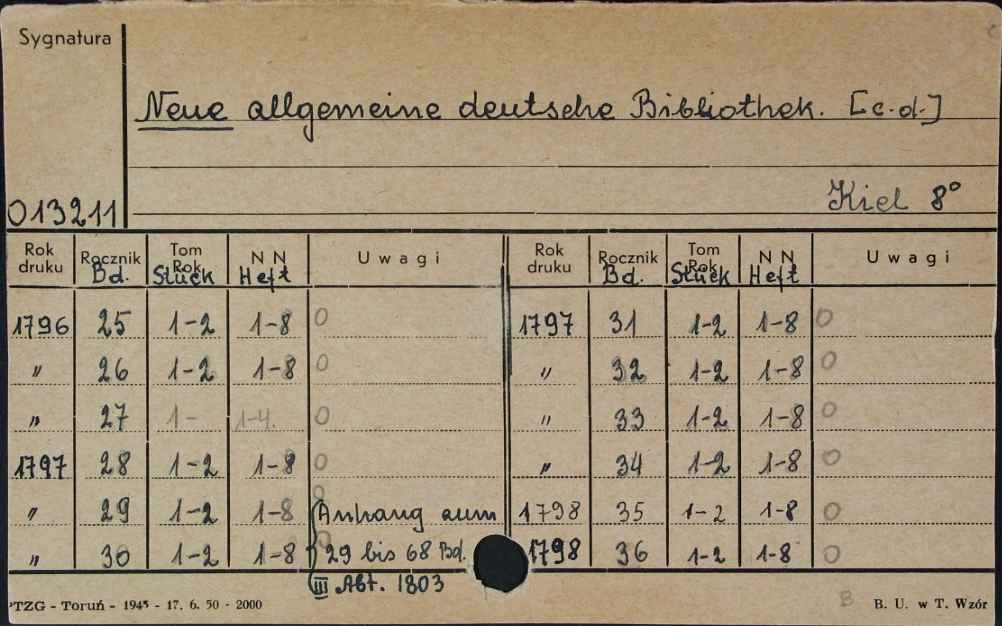 Sygnatura
Neue allgemeine deutsche Bibliothek. [c.d.]
Kiel 8°
013211
Rok druku Rocznik Bd. Tom Rok Stück N N Heft Uwagi Rok druku Rocznik Bd. Tom Rok Stück N N Heft Uwagi
1796 25 1-2 1-8 0 1797 31 1-2 1-8 0
" 26 1-2 1-8 0 " 32 1-2 1-8 0
" 27 1- 1-4. 0 " 33 1-2 1-8 0
1797 28 1-2 1-8 0 " 34 1-2 1-8 0
" 29 1-2 1-8 0 Anhang zum 1798 35 1-2 1-8 0
" 30 1-2 1-8 0 29 bis 68 Bd. 1798 36 1-2 1-8 0
III Abt. 1803
PTZG - Toruń - 1945 - 17. 6. 50 - 2000 B B. U. w T. Wzór